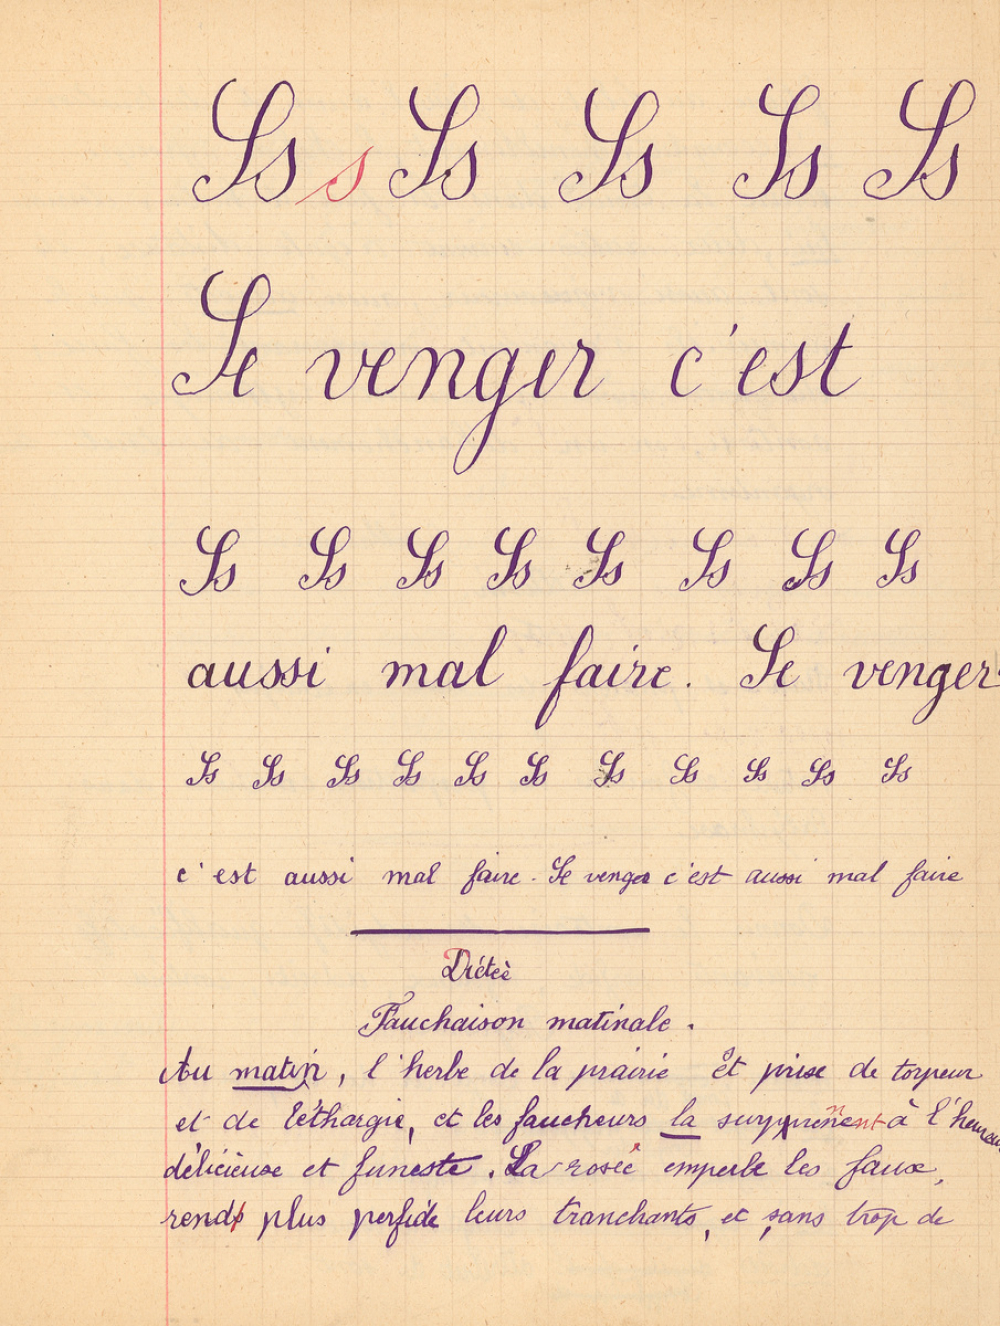 Ss s Ss Ss Ss Ss
Se venger c'est
Ss Ss Ss Ss Ss Ss Ss Ss
aussi mal faire. Se venger
Ss Ss Ss Ss Ss Ss Ss Ss Ss Ss Ss
c'est aussi mal faire. Se venger c'est aussi mal faire
Dictée
Fauchaison matinale.
Au matin, l'herbe de la prairie est prise de torpeur
et de léthargie, et les faucheurs la surprennent à l'heure
délicieuse et funeste. La rosée emperle les faux,
rend plus perfide leurs tranchants, et sans trop de